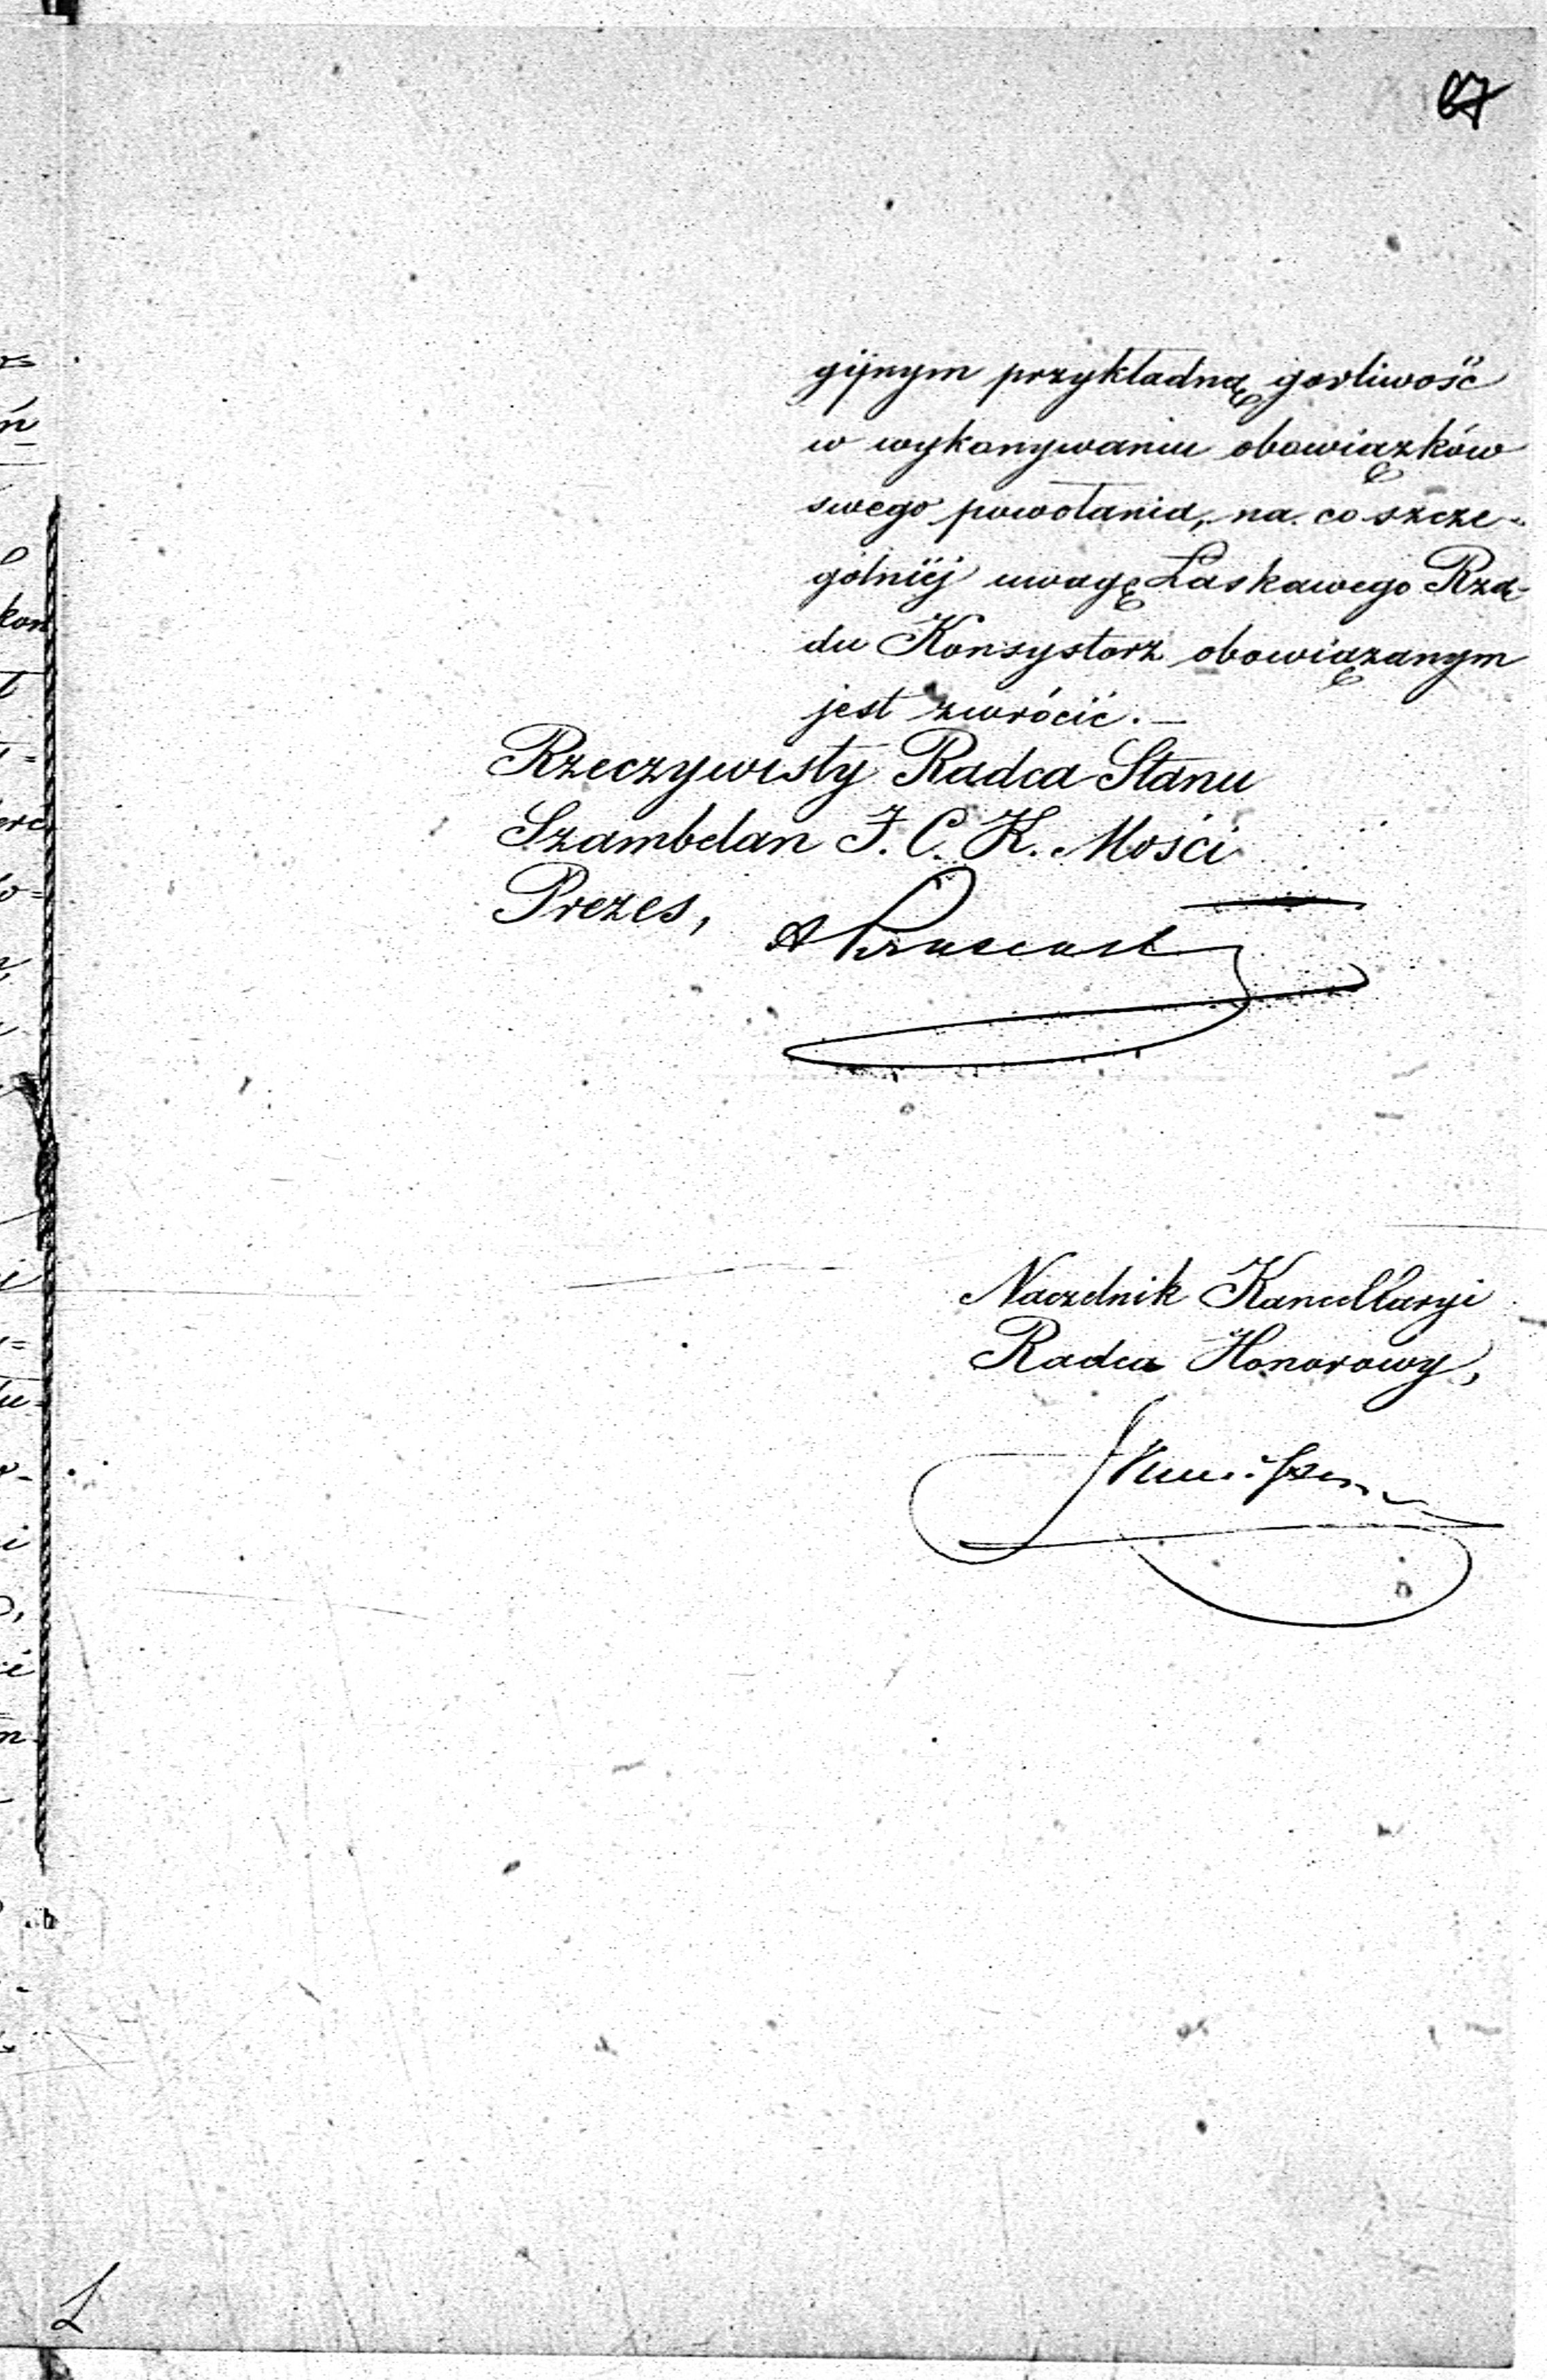 67
gijnym przykładną gorliwość
w wykonywaniu obowiązków
swego powołania, na co szcze-
gólniéj uwagę Łaskawego Rzą-
du Konsystorz obowiązanym
jest zwrócić. —
Rzeczywisty Radca Stanu
Szambelan J. C. K. Mości
Prezes,
Naczelnik Kancellaryi
Radca Honorowy,